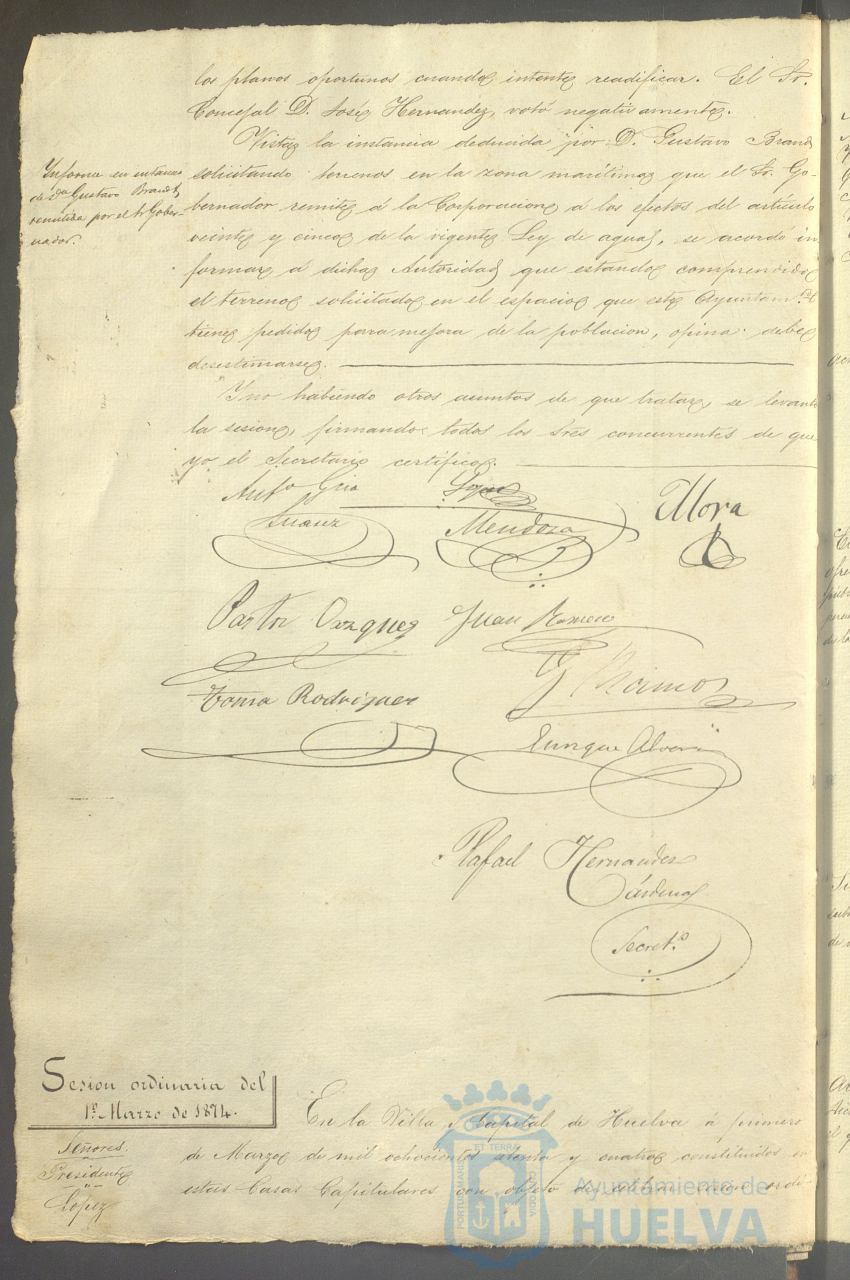 los planos oportunos cuando intente reedificar. El Sr.
Concejal D. José Hernandez, votó negativamente.
Vista la instancia deducida por D. Gustavo Brandt
solicitando terrenos en la zona marítima que el Sr. Go-
bernador remite á la Corporacion á los efectos del artículo
veinte y cinco de la vigente Ley de aguas, se acordó in
formar á dicha Autoridad que estando comprendido
el terreno solicitado en el espacio que este Ayuntam.to
tiene pedido para mejora de la poblacion, opina debe
desestimarse.
Y no habiendo otros asuntos de que tratar, se levantó
la sesion, firmando todos los Sres concurrentes de que
yo el Secretario certifico.
Informe en instancia
de Dn Gustavo Brandt,
remitida por el Sr Gober-
nador.
Suarez
Lopez
Mendoza
Mora
Pastor Vazquez
Juan Romero
Rodriguez
Enrique
Rafael Hernandez
Cárdenas
Secret.o
Sesion ordinaria del
1º Marzo de 1874.
Señores.
Presidente
López
En la Villa y Capital de Huelva á primero
de Marzo de mil ochocientos setenta y cuatro constituidos en
estas Casas Capitulares con objeto de celebrar sesion ordi
PORTUS MARIS
ET TERRAE
CUSTODIA
Ayuntamiento de
HUELVA